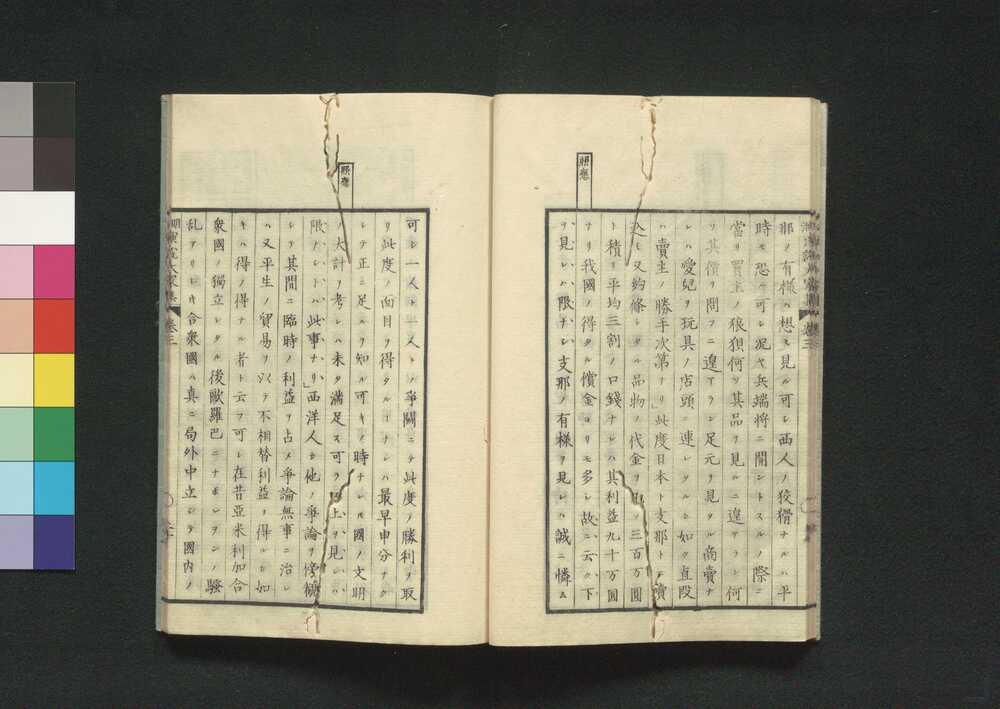 耶ノ有様ハ想ヒ見ル可シ西人ノ狡猾ナルハ平
時モ恐ル可シ况ヤ兵端将ニ開ントスルノ際ニ
當リ買主ノ狼狽何ソ其品ヲ見ルニ遑アラン何
ソ其價ヲ問フニ遑アラン足元ヲ見タル商賣ナ
レハ愛兒ヲ玩具ノ店頭ニ連レタルカ如ク直段
ハ賣主ノ勝手次第ナリ此度日本ト支那トニ賣
込ミ又約條シタル品物ノ代金ヲ三百万圓
ト積リ平均三割ノ口錢ナレハ其利益九十万圓
ナリ我國ノ得タル償金ヨリモ多シ故ニ云ク下
ヲ見レハ限ナシト支那ノ有様ヲ見レハ誠ニ憐ム
照應
可シ一人ト一人トノ爭鬪ニテ此度ノ勝利ヲ取
リ此度ノ面目ヲ得タルヿナレハ最早申分ナク
シテ正ニ足ルヲ知ル可キノ時ナレ𪜈國ノ文明
ノ大計ヲ考レハ未タ滿足ス可ラス上ヲ見レハ
限ナシトハ此事ナリ西洋人カ他ノ爭論ヲ傍観
シテ其間ニ臨時ノ利益ヲ占メ爭論無事ニ治レ
ハ又平生ノ貿易ヲ以テ不相替利益ヲ得ルカ如
キハ得ノ得ナル者ト云フ可シ在昔亜米利加合
衆國ノ獨立シタル後歐羅巴ニナポレヲンノ騒
乱アリシキ合衆國ハ真ニ局外中立シテ國内ノ
照應
明治文家集
巻三